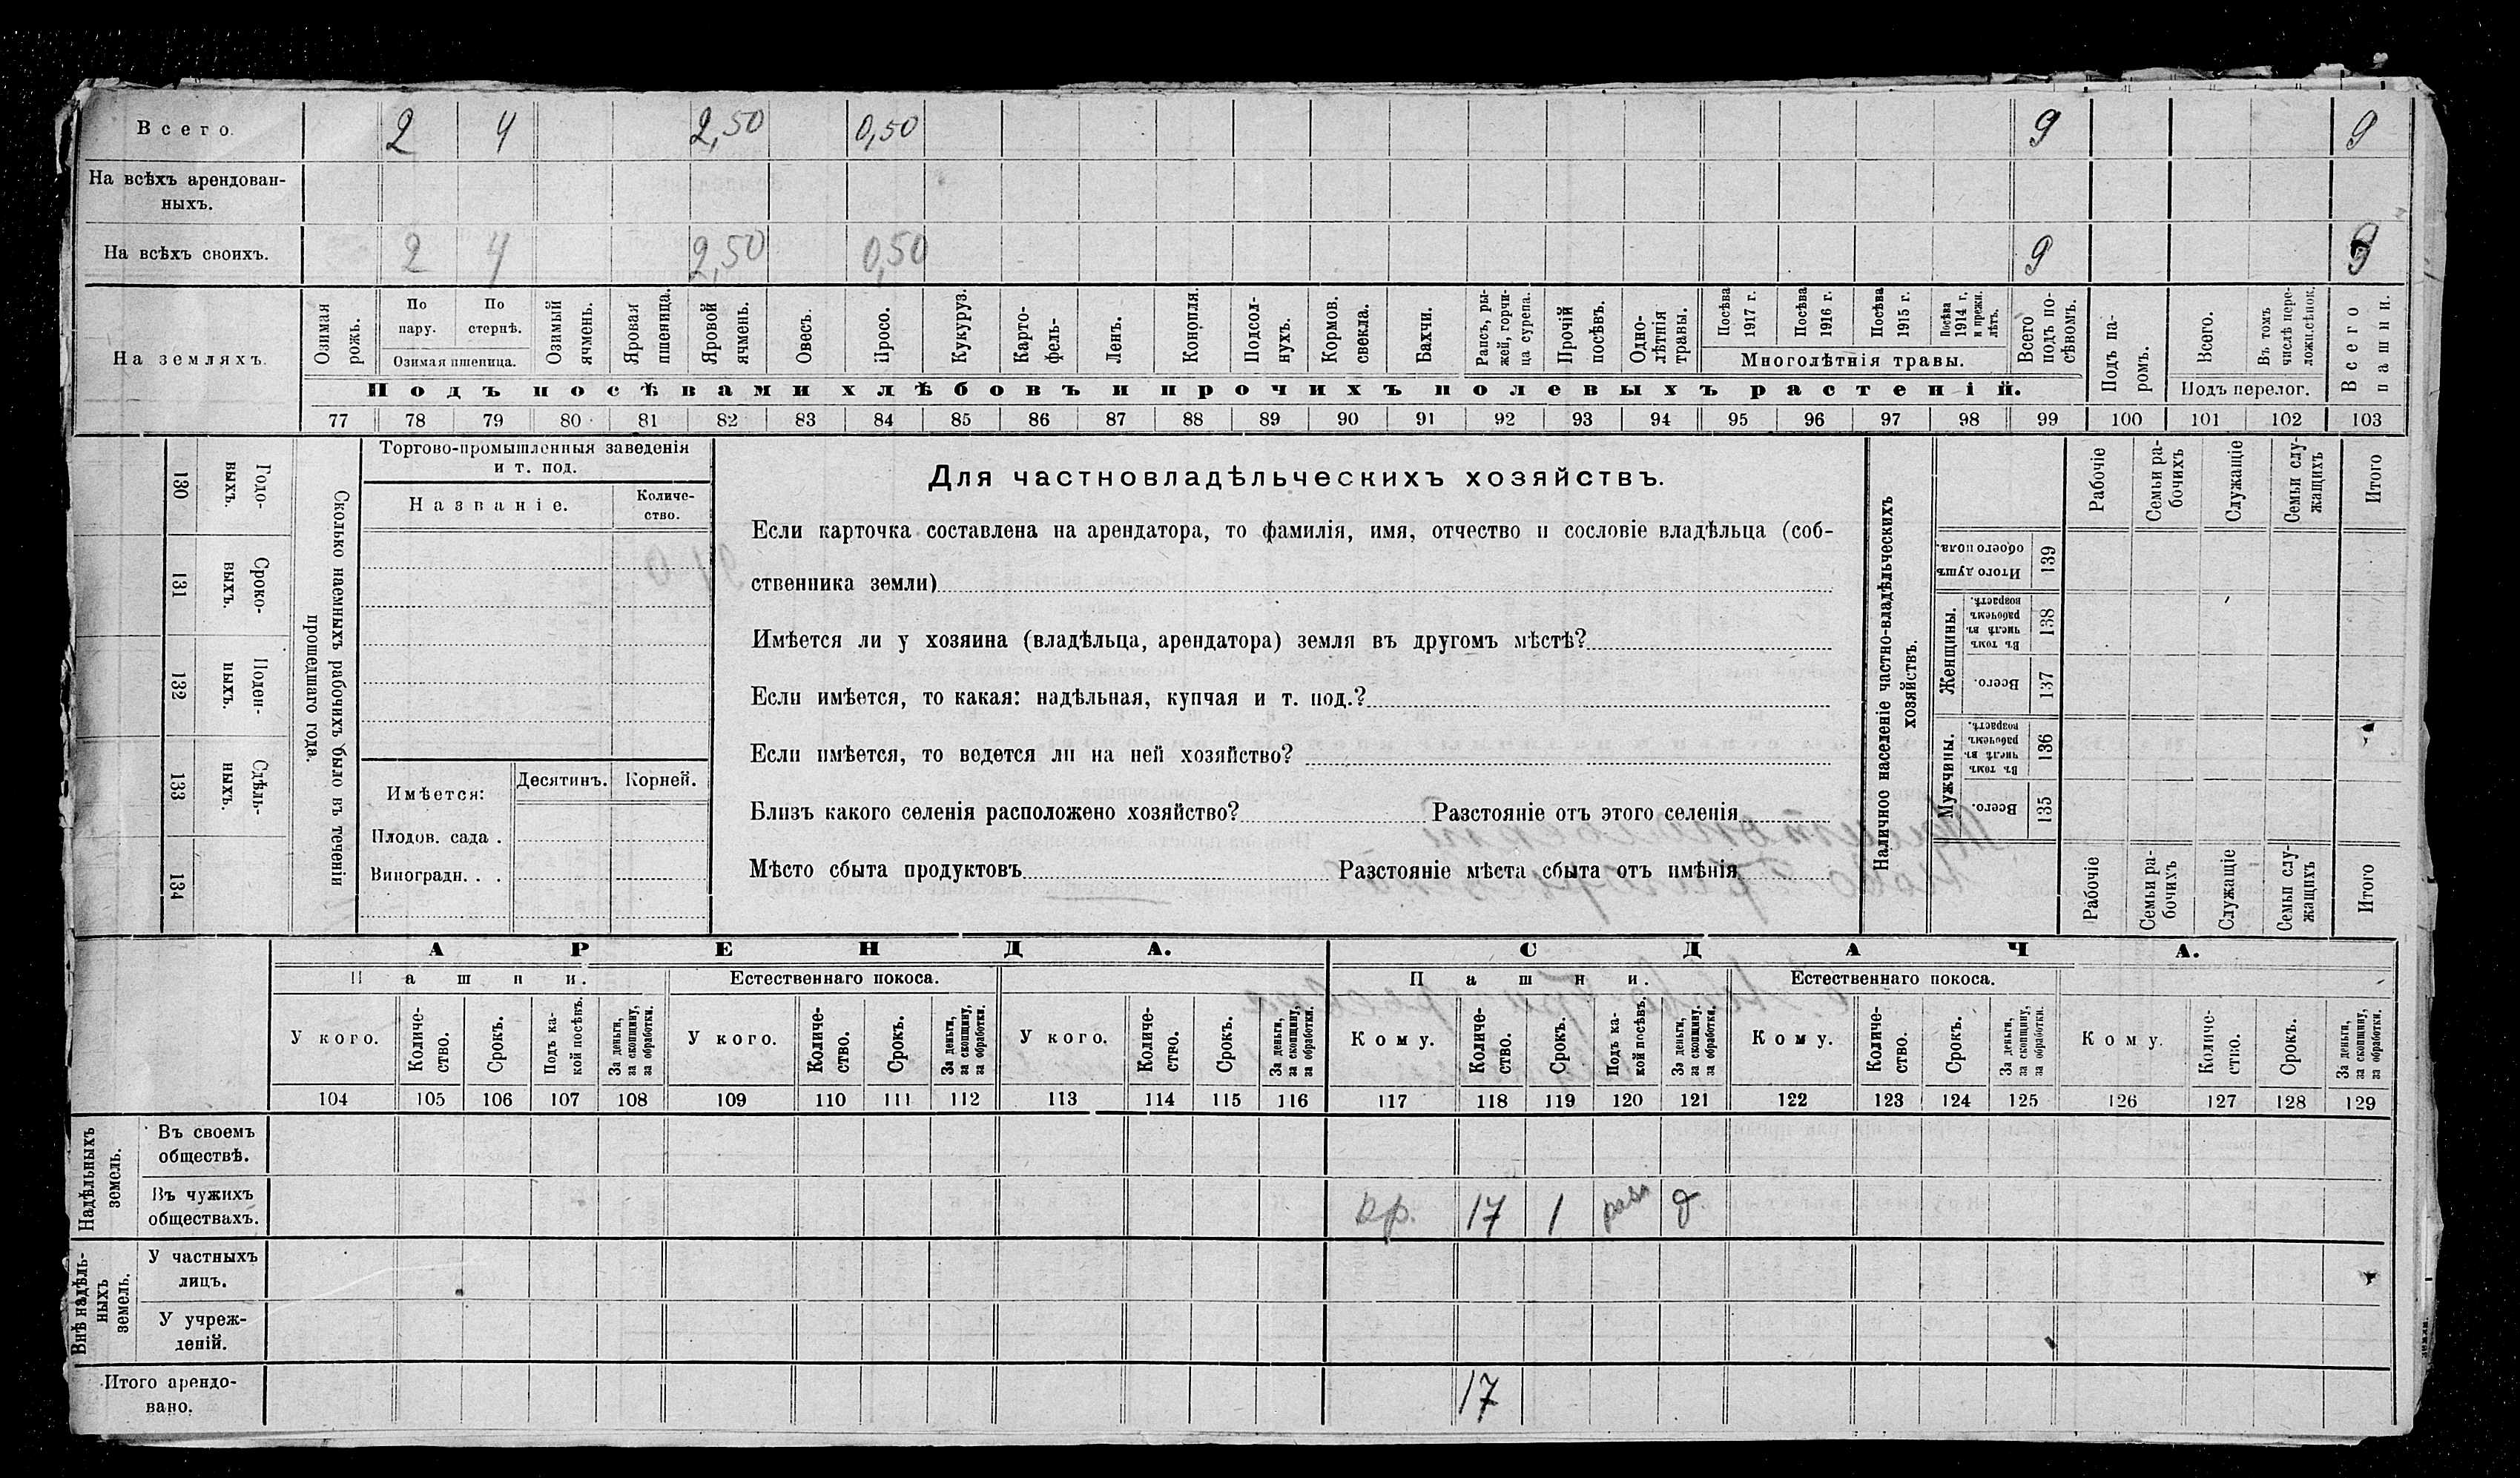 Всего. 2 4 2,50 0,50 9 9
На всѣхъ арендован-
ныхъ.
На всѣхъ своихъ. 2 4 2,50 0,50 9 9
На земляхъ.
Озимая рожь.
По пару.
По стернѣ.
Озимая пшеница.
Озимый ячмень.
Яровая пшеница.
Яровой ячмень.
Овесъ.
Просо.
Кукуруз.
Карто-
фель-
Ленъ.
Конопля.
Подсол-
нухъ.
Кормов.
свекла.
Бахчи.
Рапсъ, ры-
жей, горчи-
ца сурепа.
Прочій
посѣвъ.
Одно-
лѣтнія
травы.
Посѣва
1917 г.
Посѣва
1916 г.
Посѣва
1915 г.
Посѣва
1914 г.
и прежн.
лѣтъ.
Многолѣтнія травы.
Всего
подъ по-
сѣвомъ.
Подъ па-
ромъ.
Всего.
Въ томъ
числѣ пере-
ложн.сѣнок.
Подъ перелог.
Всего
пашни.
Подъ посѣвами хлѣбовъ и прочихъ полевыхъ растеній.
77 78 79 80 81 82 83 84 85 86 87 88 89 90 91 92 93 94 95 96 97 98 99 100 101 102 103
130 Годо-
выхъ.
131 Сроко-
выхъ.
132 Поден-
ныхъ.
133 Сдѣль-
ныхъ.
134
Сколько наемныхъ рабочихъ было въ теченіи
прошедшаго года.
Торгово-промышленныя заведенія
и т. под.
Названіе.
Количе-
ство.
Имѣется:
Десятинъ. Корней.
Плодов. сада .
Виноградн. . .
Для частновладѣльческихъ хозяйствъ.
Если карточка составлена на арендатора, то фамилія, имя, отчество и сословіе владѣльца (соб-
ственника земли)
Имѣется ли у хозяина (владѣльца, арендатора) земля въ другомъ мѣстѣ?
Если имѣется, то какая: надѣльная, купчая и т. под.?
Если имѣется, то ведется ли на ней хозяйство?
Близъ какого селенія расположено хозяйство? Разстояніе отъ этого селенія
Мѣсто сбыта продуктовъ Разстояніе мѣста сбыта отъ имѣнія
Наличное населеніе частно-владѣльческихъ
хозяйствъ.
Рабочіе
Семьи ра-
бочихъ
Служащіе
Семьи слу-
жащихъ
Итого
Итого душъ
обоего пола.
139
Женщины.
Въ томъ
числѣ въ
рабочемъ
возрастѣ.
138
Всего.
137
Мужчины.
Въ томъ
числѣ въ
рабочемъ
возрастѣ.
136
Всего.
135
Рабочіе
Семьи ра-
бочихъ
Служащіе
Семьи слу-
жащихъ
Итого
АРЕНДА. СДАЧА.
Пашни. Естественнаго покоса. Пашни. Естественнаго покоса.
У кого.
Количе-
ство.
Срокъ.
Подъ ка-
кой посѣвъ.
За деньги,
за скопщину,
за обработки.
У кого.
Количе-
ство.
Срокъ.
За деньги,
за скопщину,
за обработки.
У кого.
Количе-
ство.
Срокъ.
За деньги,
за скопщину,
за обработки.
Кому.
Количе-
ство.
Срокъ.
Подъ ка-
кой посѣвъ.
За деньги,
за скопщину,
за обработки.
Кому.
Количе-
ство.
Срокъ.
За деньги,
за скопщину,
за обработки.
Кому.
Количе-
ство.
Срокъ.
За деньги,
за скопщину,
за обработки.
104 105 106 107 108 109 110 111 112 113 114 115 116 117 118 119 120 121 122 123 124 125 126 127 128 129
Надѣльныхъ
земель.
Въ своемъ
обществѣ.
Въ чужихъ
обществахъ.
кр. 17 1 д.
Внѣ надѣль-
ныхъ
земель.
У частныхъ
лицъ.
У учреж-
деній.
Итого арендо-
вано.
17